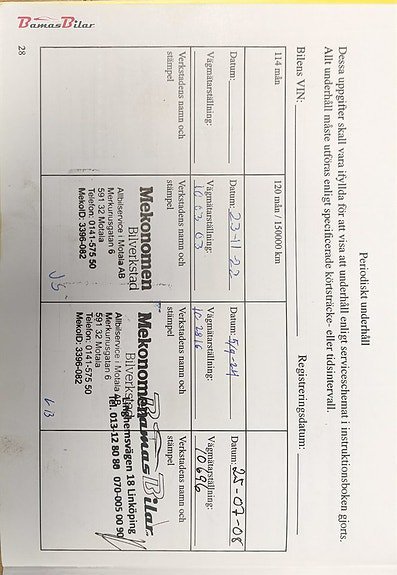 BamasBilar
Periodiskt underhåll
Dessa uppgifter skall vara ifyllda för att visa att underhåll enligt serviceschemat i instruktionsboken gjorts.
Allt underhåll måste utföras enligt specificerade körsträcke- eller tidsintervall.
Bilens VIN: Registreringsdatum:
114 mån
Datum:
Vägmätarställning:
Verkstadens namn och
stämpel
120 mån / 150000 km
Datum: 23-11-22
Vägmätarställning:
Verkstadens namn och
stämpel
Mekonomen
Bilverkstad
Altbilservice i Motala AB
Merkurusgatan 6
591 32 Motala
Telefon: 0141-575 50
MekoID: 3396-082
Datum: 5/9-24
Vägmätarställning:
102816
Verkstadens namn och
stämpel
Mekonomen
Bilverkstad
Altbilservice i Motala AB
Merkurusgatan 6
591 32 Motala
Telefon: 0141-575 50
MekoID: 3396-082
Datum: 25-07-08
Vägmätarställning:
10696
Verkstadens namn och
stämpel
Bamas Bilar
Linghemsvägen 18 Linköping
Tel. 013-12 80 88 070-005 00 90
28